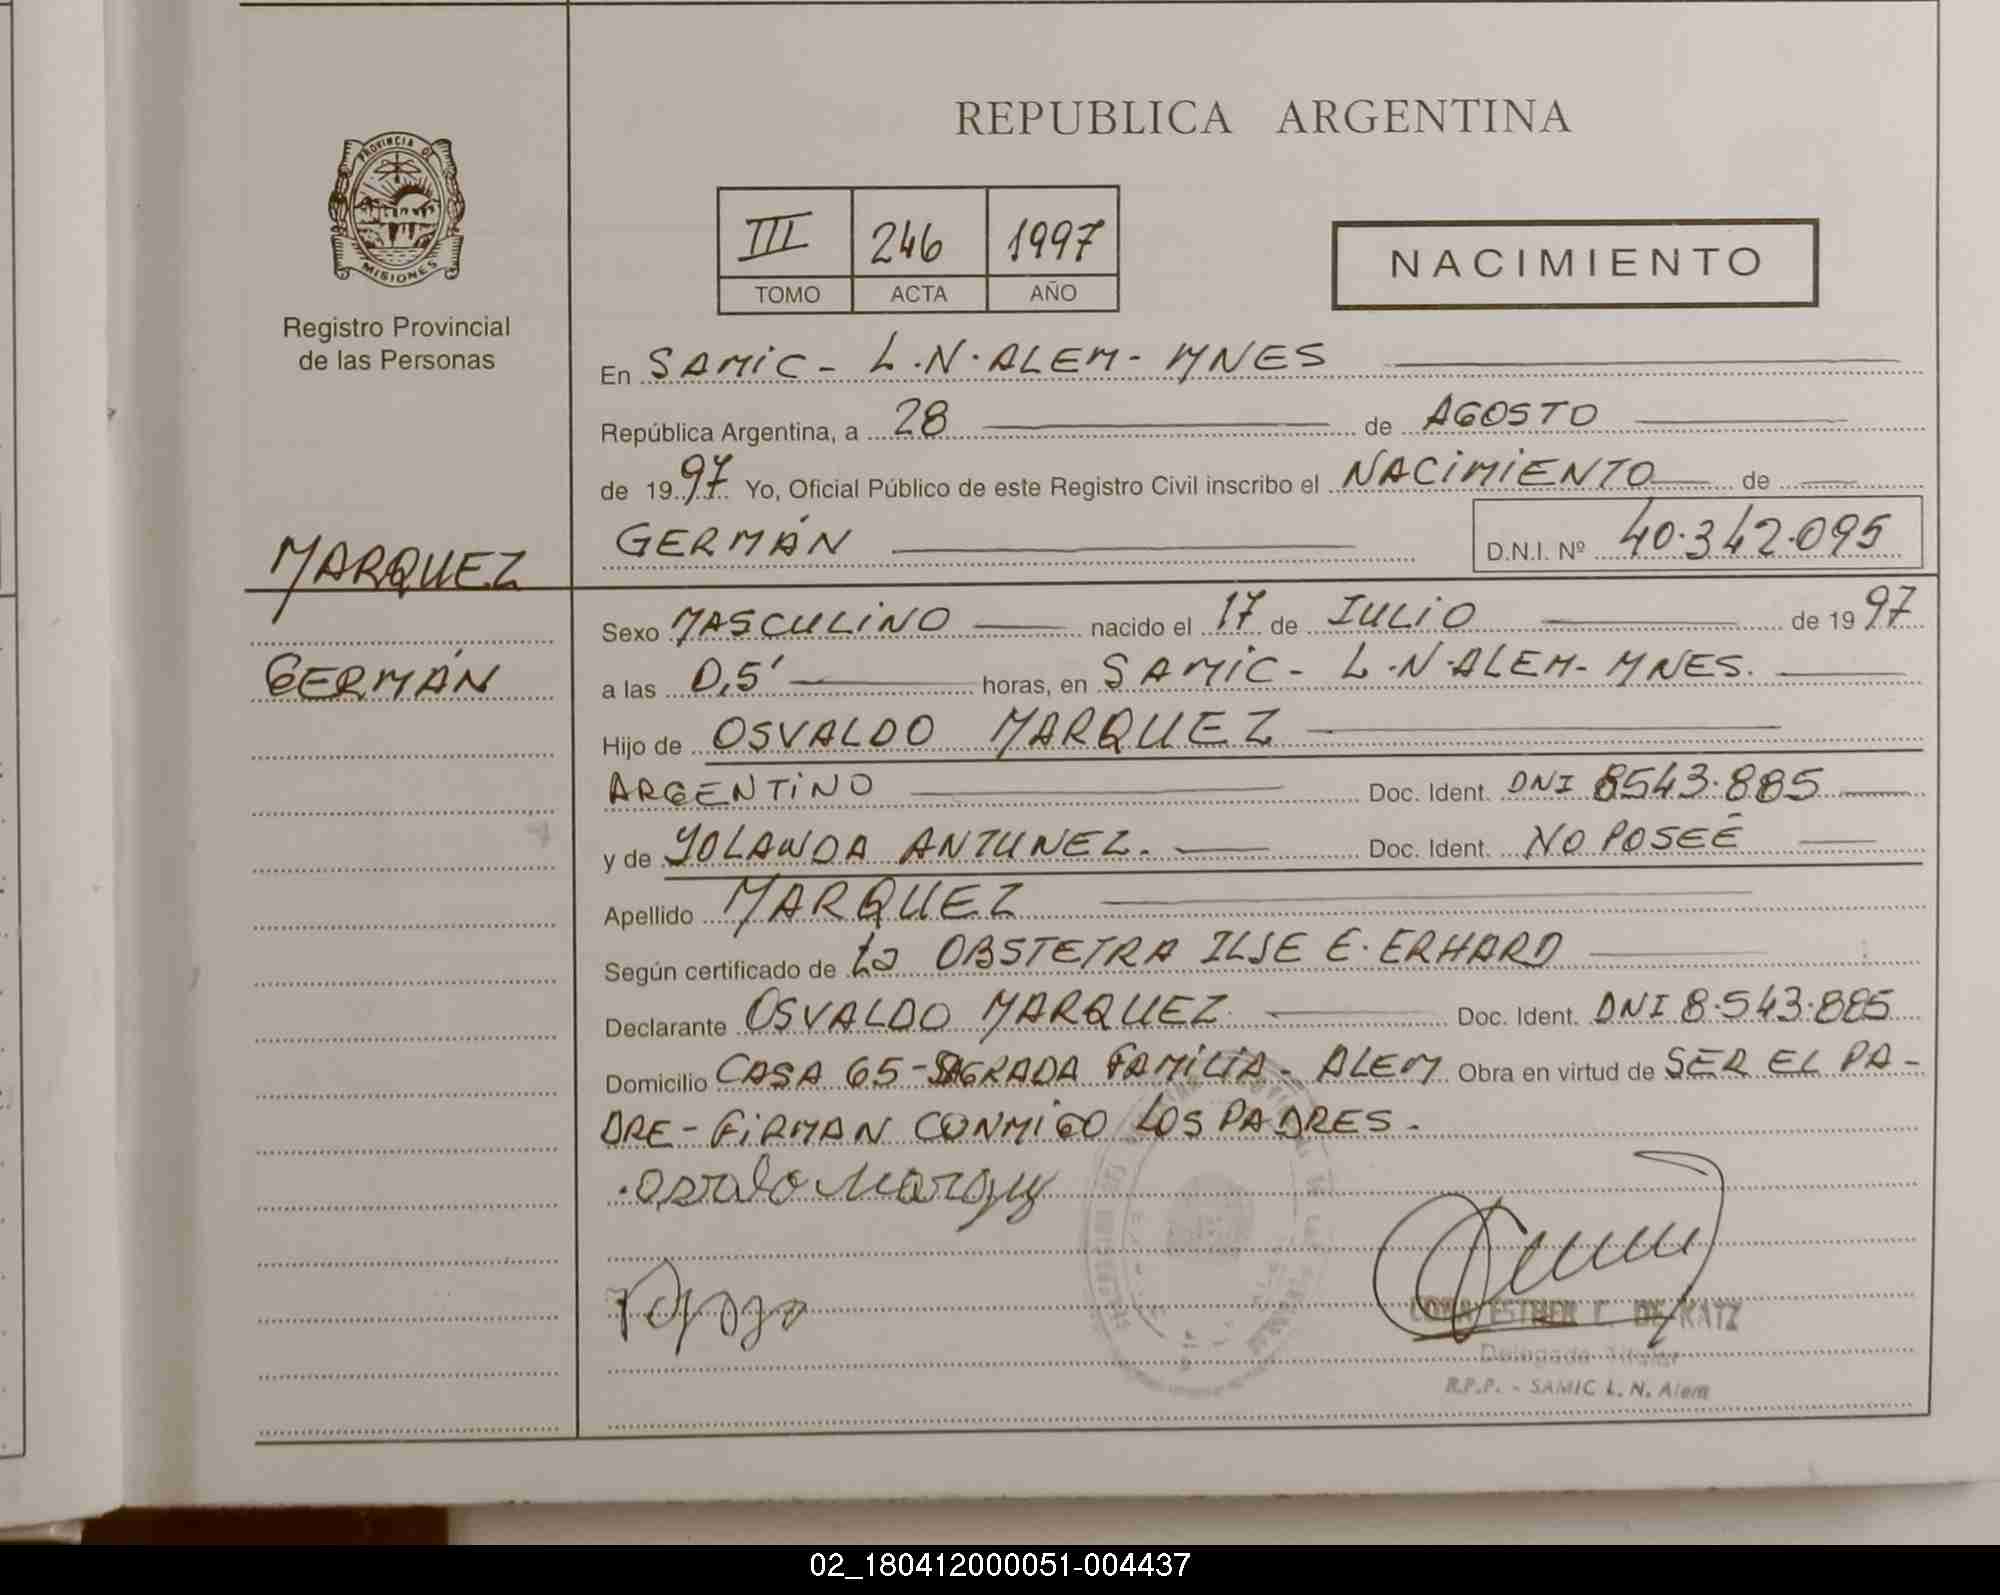 REPUBLICA ARGENTINA
PROVINCIA DE
MISIONES
Registro Provincial
de las Personas
III 246 1997
TOMO ACTA AÑO
NACIMIENTO
En SAMIC - L.N.ALEM - MNES
República Argentina, a 28 de AGOSTO
de 1997 Yo, Oficial Público de este Registro Civil inscribo el NACIMIENTO de
GERMÁN D.N.I. Nº 40.342.095
MARQUEZ
GERMÁN
Sexo MASCULINO nacido el 17 de JULIO de 1997
a las 0,5' horas, en SAMIC - L.N.ALEM - MNES.
Hijo de OSVALDO MARQUEZ
ARGENTINO Doc. Ident. DNI 8543.885
y de YOLANDA ANTUNEZ. Doc. Ident. NO POSEÉ
Apellido MARQUEZ
Según certificado de La OBSTETRA ILSE E. ERHARD
Declarante OSVALDO MARQUEZ Doc. Ident. DNI 8.543.885
Domicilio CASA 65 - SAGRADA FAMILIA - ALEM Obra en virtud de SER EL PA-
DRE - FIRMAN CONMIGO LOS PADRES.
ESTHER C. DE KATZ
Delegada Titular
R.P.P. - SAMIC L. N. Alem
02_180412000051-004437